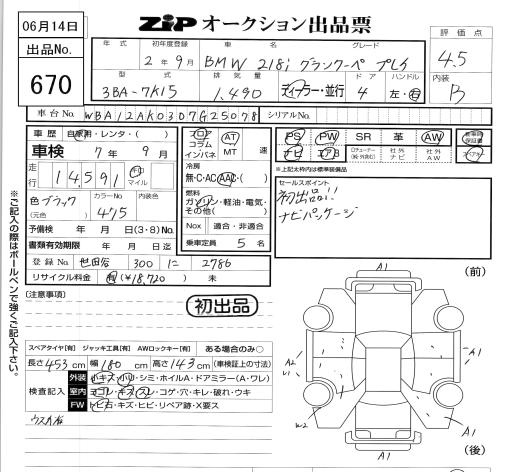 06月14日
ZIP オークション出品票
出品No.
670
年式 初年度登録 車名 グレード
2年9月 BMW 218i グランクーペ プレイ
評価点
4.5
型式 排気量 ドア ハンドル
3BA-7K15 1,490 ディーラー・並行 4 左・右
内装
B
車台No. WBA12AK0307G25078 シリアルNo.
車歴 自家用・レンタ・( )
車検 7年9月
走行 14,591 キロ マイル
色 ブラック (元色) カラーNo. 475 内装色
予備検 年 月 日(3・8)No.
書類有効期限 年 月 日迄
登録No. 世田谷 300 に 2786
リサイクル料金 有(¥18,720) 未
フロア コラム インパネ
AT MT 速
冷房
無・C・AC・AAC・( )
燃料
ガソリン・軽油・電気・その他( )
Nox 適合・非適合
乗車定員 5 名
PS PW SR 革 AW
ナビ エアB 社外ナビ 社外AW
*上記太枠内は標準装備品
セールスポイント
初出品!!
ナビパッケージ
※ご記入の際はボールペンで強くご記入下さい。
(注意事項)
初出品
スペアタイヤ[有] ジャッキ工具[有] AWロックキー[有] ある場合のみ○
長さ 453 cm 幅 180 cm 高さ 143 cm (車検証上の寸法)
検査記入
外装 小キズ・小凹・シミ・ホイルA・ドアミラー(A・ワレ)
室内 ヨゴレ・キズ・スレ・コゲ・穴・キレ・破れ・ウキ
FW トビ石・キズ・ヒビ・リペア跡・X要ス
(前)
A1
A1
A2
A1
W2
A1
(後)